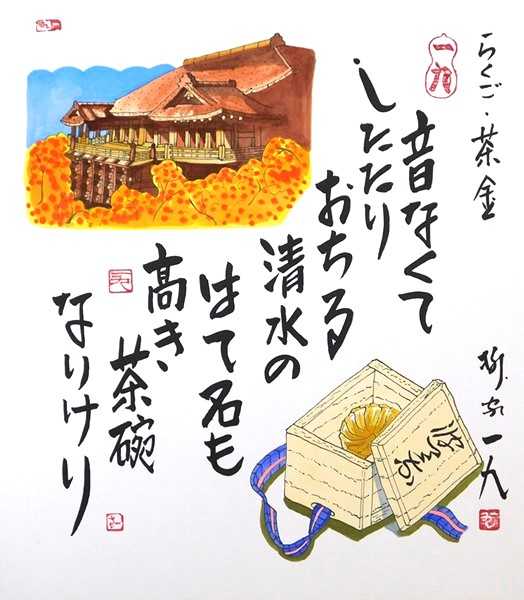 らくご・茶金
音なくて
したたり
おちる
清水の
はて名も
高き、
茶碗
なりけり
柳家一九